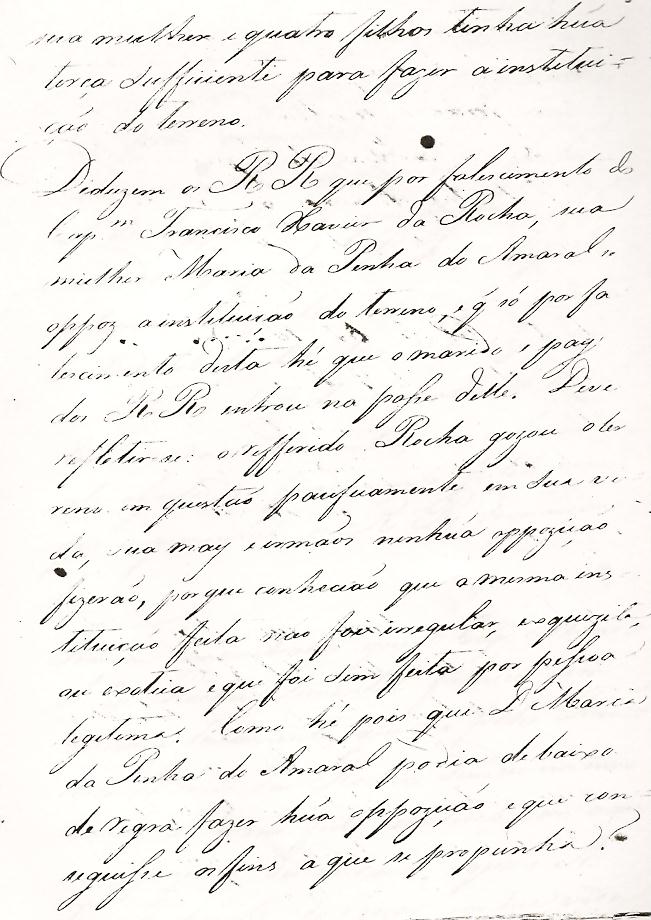 sua mulher e quatro filhos tinha hũa
terça sufficiente para fazer a institui=
ção do terreno.
Deduzem os RR que por falescimento do
Cap.m Francisco Xavier da Rocha, sua
mulher Maria da Penha do Amaral se
oppoz a instituicão do terreno, e q̃ só por fa
lescimento desta hé que o marido e pay
dos RR entrou na posse delle. Deve
refletir-se: o refferido Rocha gozou o ter
reno em questão pacificamente em sua vi
da, sua may e irmãos nenhũa oppozição
fizerão, porque conhecião que a mesma ins
tituição feita não foi irregular, exquezita,
ou exotica e que foi sim feita por pessoa
legitima. Como hé pois que D Maria
da Penha do Amaral podia debaixo
de regra fazer hũa oppozição e que con
seguisse os fins a que se propunha?